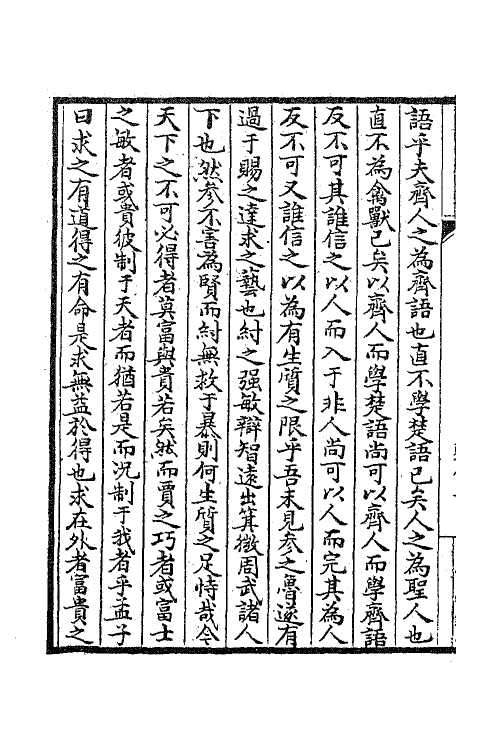 語乎夫齊人之為齊語也直不學楚語已矣人之為聖人也
直不為禽獸已矣以齊人而學楚語尚可以齊人而學齊語
反不可其誰信之以人而入于非人尚可以人而完其為人
反不可又誰信之以為有生質之限乎吾未見參之魯遂有
過于賜之達求之藝也紂之强敏辯智遠出箕微周武諸人
下也然參不害為賢而紂無救于暴則何生質之足恃哉今
天下之不可必得者莫富與貴若矣然而賈之巧者或富士
之敏者或貴彼制于天者而猶若是而况制于我者乎孟子
曰求之有道得之有命是求無益於得也求在外者富貴之